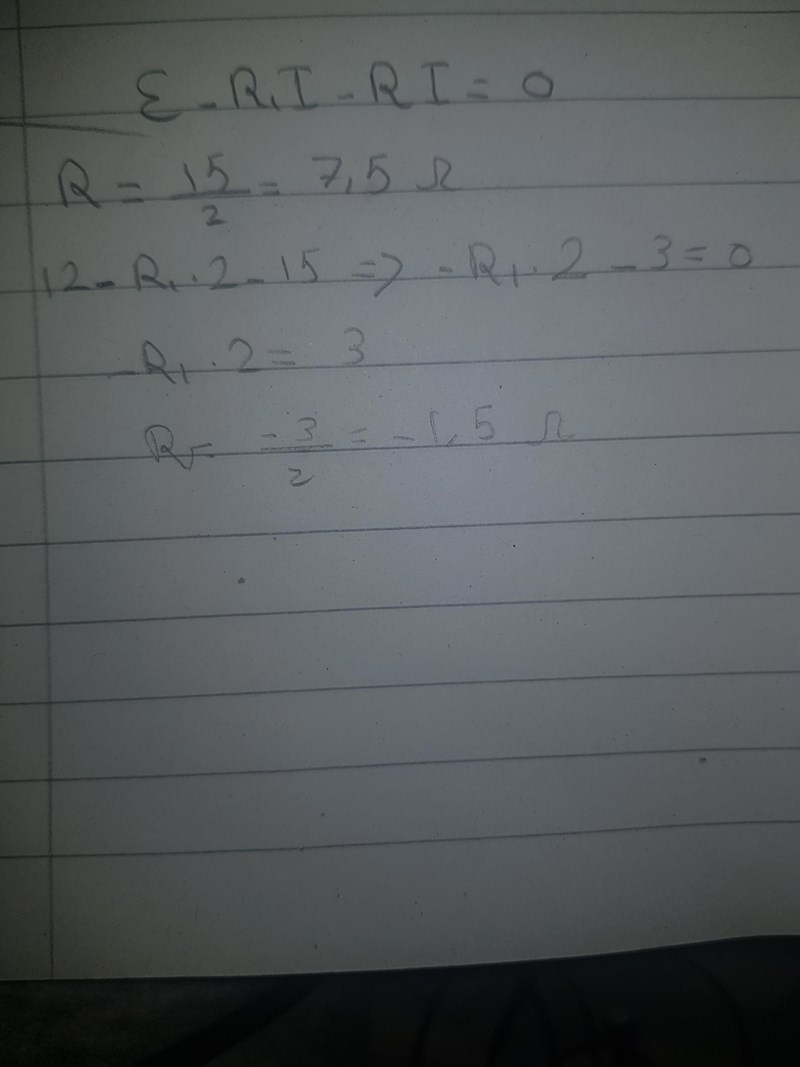 ε - R₁I - RI = 0
R = 15/2 = 7,5 Ω
12 - R₁·2 - 15 => - R₁·2 - 3 = 0
-R₁·2 = 3
R₁= -3/2 = -1,5 Ω